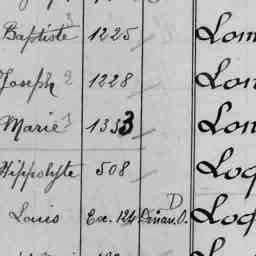 Baptiste 3 1225 Lom
Joseph 2 1228 Lon
Marie 3 1353 Lon
Hippolyte 508 Loq
Louis Exc. 124 D. Loq